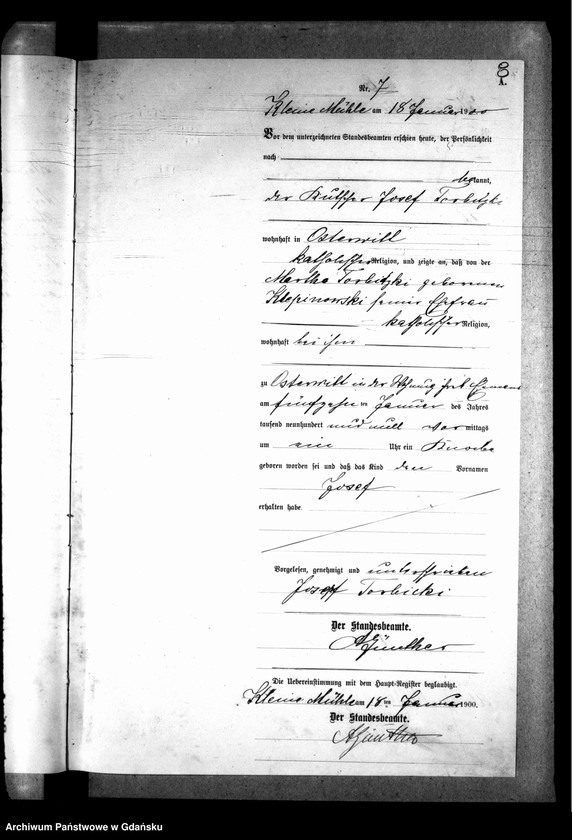 8
A.
Nr. 7
Kleine Mühle am 18 Januar 1900
Vor dem unterzeichneten Standesbeamten erschien heute, der Persönlichkeit
nach
bekannt,
der Kutscher Josef Torbitzki
wohnhaft in Osterwitt
katholischer Religion, und zeigte an, daß von der
Martha Torbitzki geborenen
Klepinowski seiner Ehefrau
katholischer Religion,
wohnhaft bei ihm
zu Osterwitt in der Wohnung
am fünfzehnten Januar des Jahres
tausend neunhundert und null Vormittags
um ein Uhr ein Knabe
geboren worden sei und daß das Kind den Vornamen
Josef
erhalten habe.
Vorgelesen, genehmigt und unterschrieben
Josef Torbicki
Der Standesbeamte.
Günther
Die Uebereinstimmung mit dem Haupt-Register beglaubigt.
Kleine Mühle am 18ten Januar 1900.
Der Standesbeamte.
AGünther
Archiwum Państwowe w Gdańsku